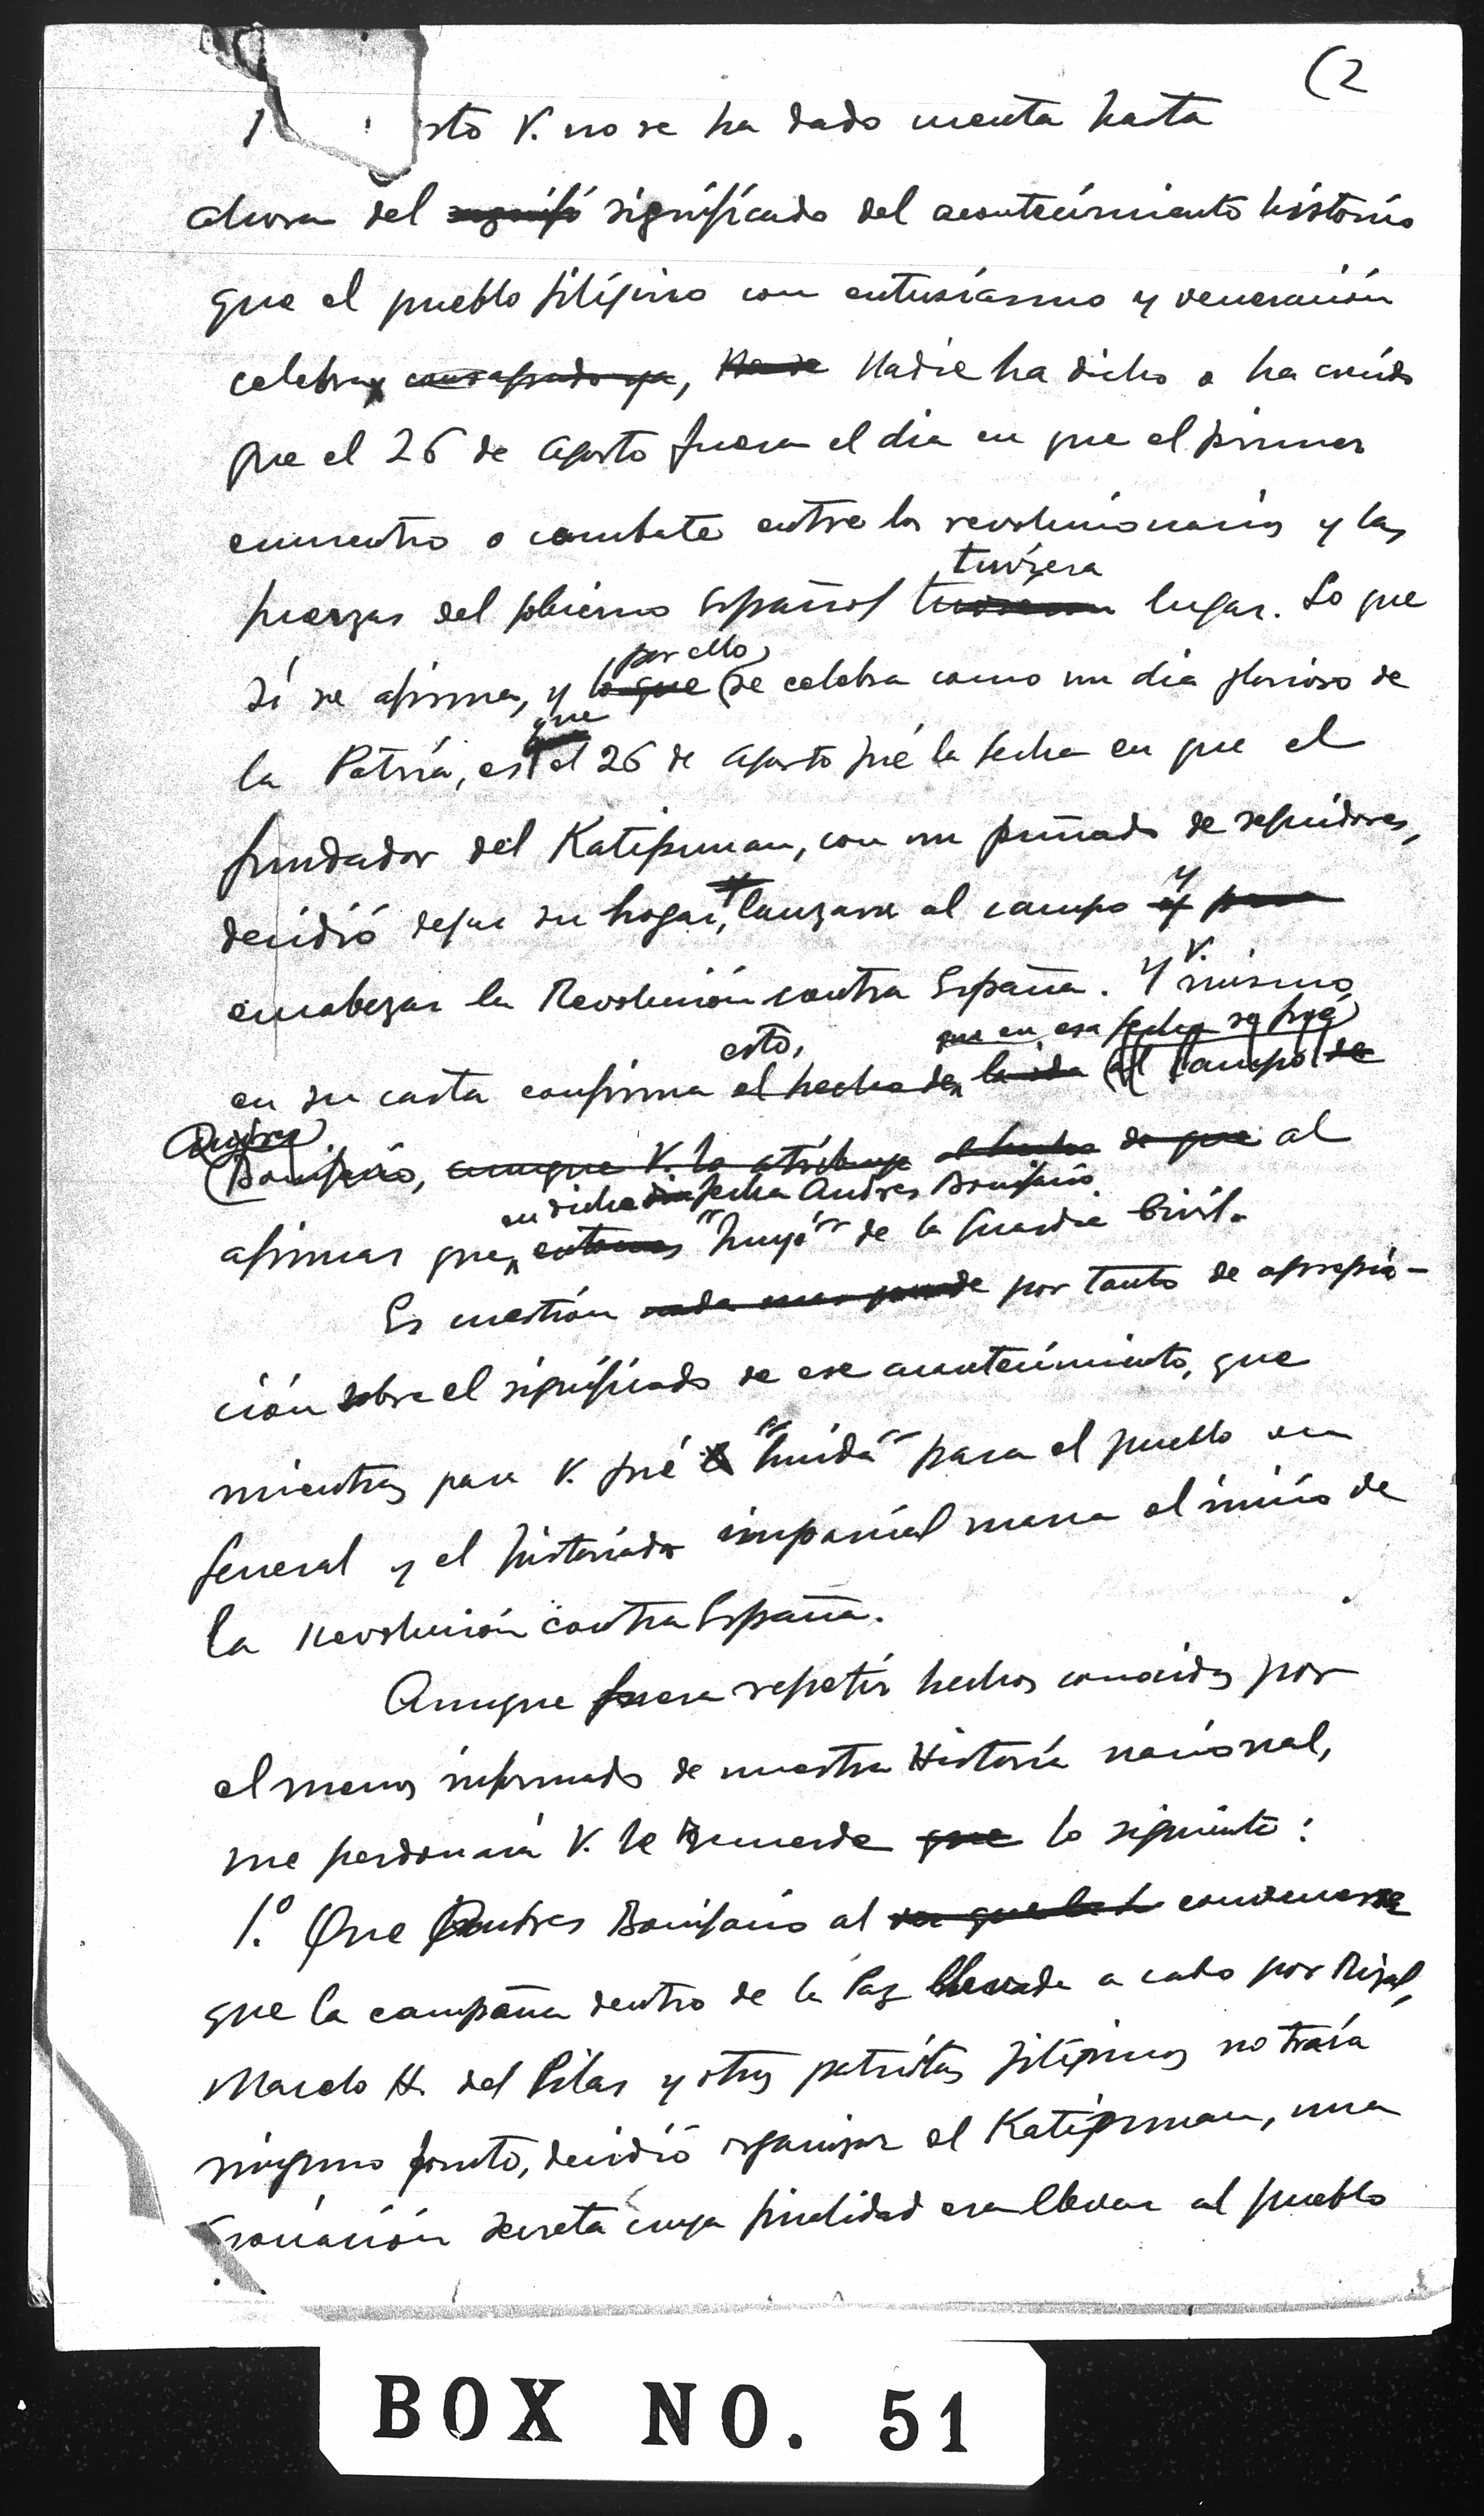 (2
sto V. no se ha dado cuenta hasta
ahora del significado del acontecimiento historico
que el pueblo filipino con entusiasmo y veneración
celebra, Nadie ha dicho o ha creido
que el 26 de agosto fuera el dia en que el primer
encuentro o combate entre los revolucionarios y las
tuviera
fuerzas del gobierno Español lugar. Lo que
por ello
sí se afirma, y lo que se celebra como un dia glorioso de
que
la Patria, es el 26 de agosto fué la fecha en que el
fundador del Katipunan, con un puñado de seguidores,
y
decidió dejar su hogar, lanzarse al campo y para
V.
encabezar la Revolución contra España. Y mismo
esto, que en esa fecha se fué
en su carta confirma el hecho de la ida al campo de
Andres
Bonifacio, aunque V. lo atribuye el hecho de que al
en dicha fecha Andres Bonifacio
afirmar que entonces "huyó" de la Guardia Civil.
Es cuestión por tanto de aprecia-
ción sobre el significado de ese acontecimiento, que
mientras para V. fué "huida" para el pueblo en
general y el historiador imparcial marca el inicio de
la Revolución contra España.
Aunque fuera repetir hechos conocidos por
el menos informado de nuestra Historia nacional,
me perdonará V. le recuerde que lo siguiente:
1.º Que Andres Bonifacio al convencerse
que la campaña dentro de la Paz llevada a cabo por Rizal,
Marcelo H. del Pilar y otros patriotas filipinos no traía
ninguno fruto, decidió organizar el Katipunan, una
asociación secreta cuya finalidad era llevar al pueblo
BOX NO. 51